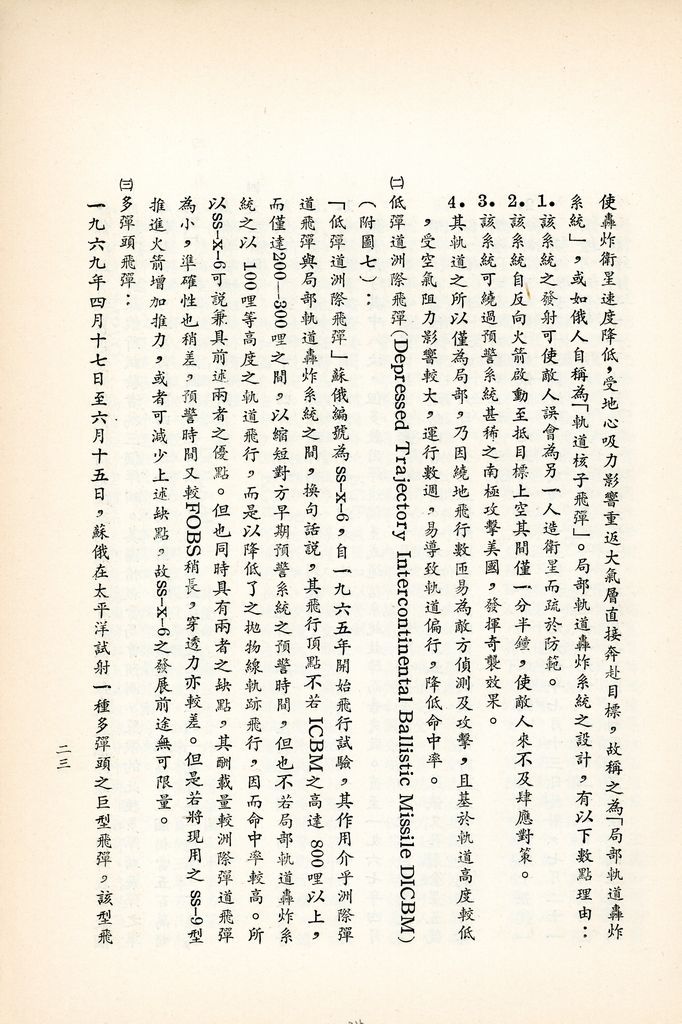 使轟炸衛星速度降低，受地心吸力影響重返大氣層直接奔赴目標，故稱之為「局部軌道轟炸
系統」，或如俄人自稱為「軌道核子飛彈」。局部軌道轟炸系統之設計，有以下數點理由：
1.該系統之發射可使敵人誤會為另一人造衛星而疏於防範。
2.該系統自反向火箭啟動至抵目標上空其間僅一分半鐘，使敵人來不及肆應對策。
3.該系統可繞過預警系統甚稀之南極攻擊美國，發揮奇襲效果。
4.其軌道之所以僅為局部，乃因繞地飛行數匝易為敵方偵測及攻擊，且基於軌道高度較低
，受空氣阻力影響較大，運行數週，易導致軌道偏行，降低命中率。
㈡低彈道洲際飛彈(Depressed Trajectory Intercontinental Ballistic Missile DICBM)
（附圖七）：
「低彈道洲際飛彈」蘇俄編號為SS-X-6，自一九六五年開始飛行試驗，其作用介乎洲際彈
道飛彈與局部軌道轟炸系統之間，換句話說，其飛行頂點不若ICBM之高達800哩以上，
而僅達200—300哩之間，以縮短對方早期預警系統之預警時間，但也不若局部軌道轟炸系
統之以100哩等高度之軌道飛行，而是以降低了之拋物線軌跡飛行，因而命中率較高。所
以SS-X-6可說兼具前述兩者之優點。但也同時具有兩者之缺點，其酬載量較洲際彈道飛彈
為小，準確性也稍差，預警時間又較FOBS稍長，穿透力亦較差。但是若將現用之SS-9型
推進火箭增加推力，或者可減少上述缺點，故SS-X-6之發展前途無可限量。
㈢多彈頭飛彈：
一九六九年四月十七日至六月十五日，蘇俄在太平洋試射一種多彈頭之巨型飛彈，該型飛
二三